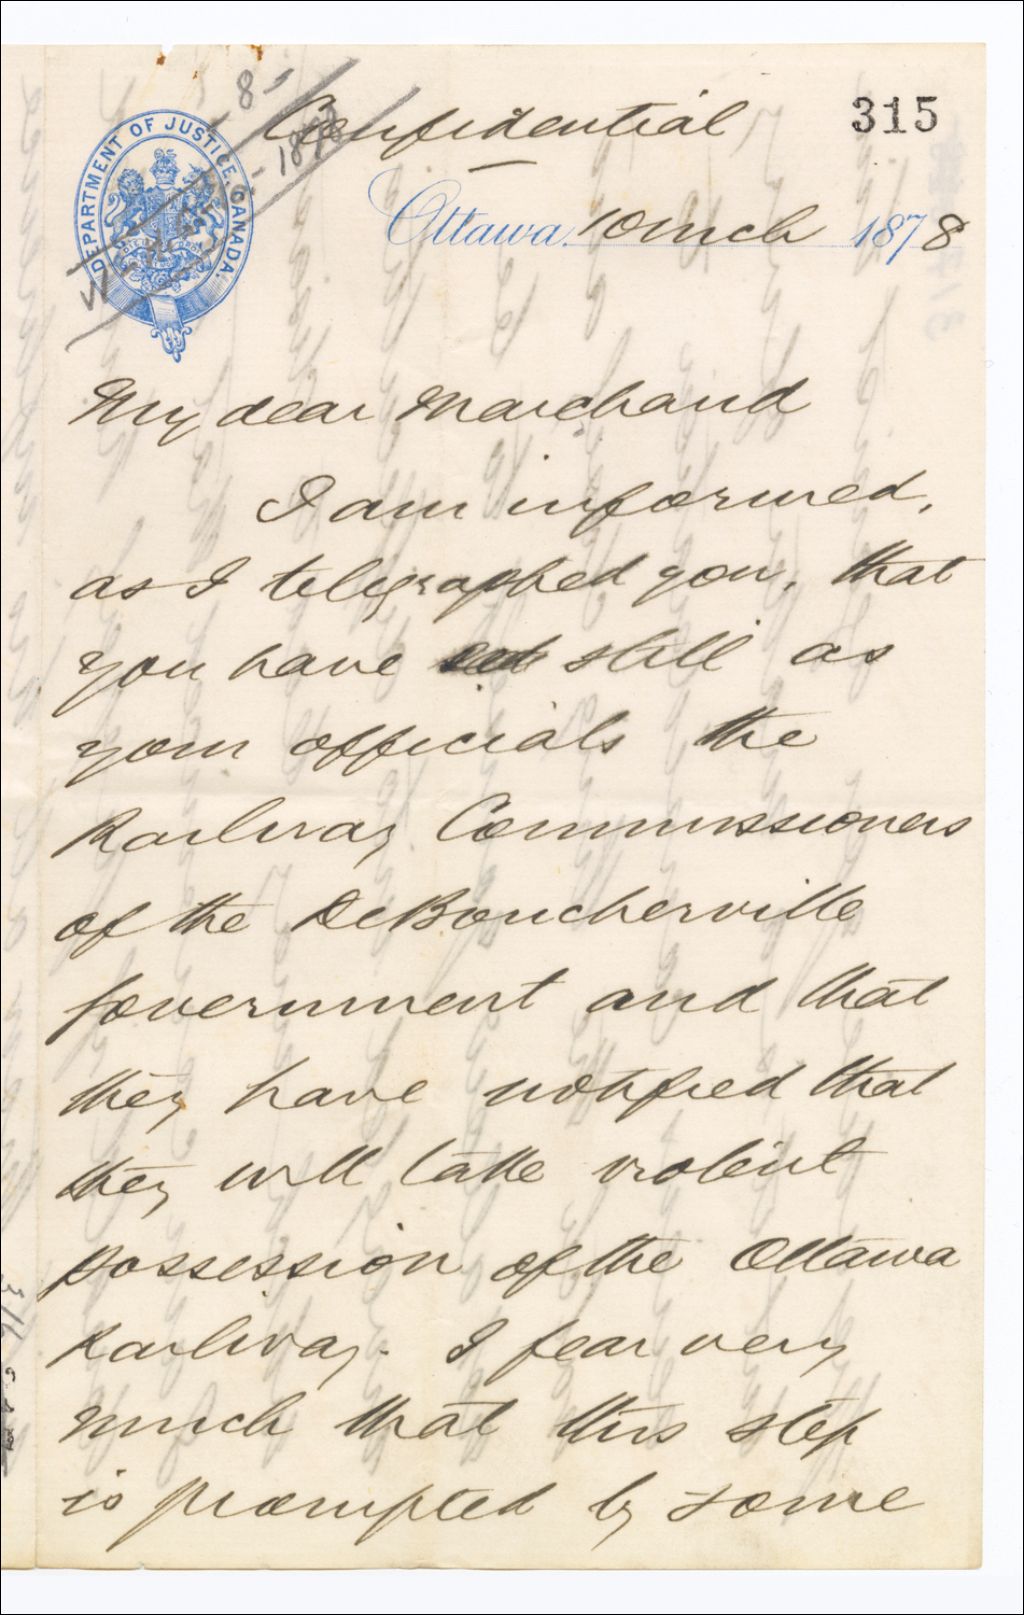 Confidential
315
DEPARTMENT OF JUSTICE, CANADA.
Ottawa, 10 mch 1878
My dear Marchand
I am informed,
as I telegraphed you, that
you have still as
your officials the
Railway Commissioners
of the DeBoucherville
Government and that
they have notified that
they will take violent
possession of the Ottawa
Railway. I fear very
much that this step
is prompted by some